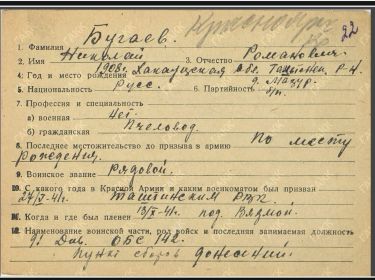 Красноярск
22
1. Фамилия Бугаев.
2. Имя Николай 3. Отчество Романович
4. Год и место рождения 1908г. Хакасская обл. Таштыпск. Р-н
5. Национальность Русс. 6. Партийность б/п.
7. Профессия и специальность
а) военная нет
б) гражданская Пчеловод.
8. Последнее местожительство до призыва в армию По месту
рождения.
9. Воинское звание рядовой.
10. С какого года в Красной Армии и каким военкоматом был призван
Таштипский РВК
11. Когда и где был пленен 13/X-41г. под Вязмой.
12. Наименование воинской части, род войск и последняя занимаемая должность
91 див. ОБС 142.
Пункт сборов донесений